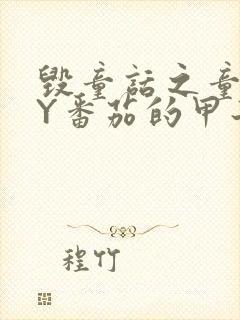 毁童话之童
Y番茄的甲
程竹